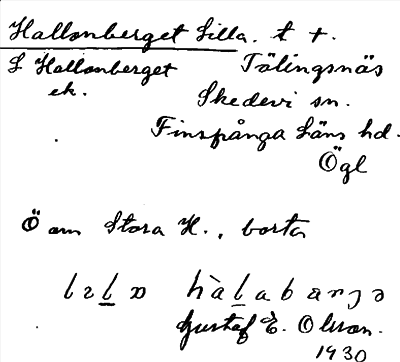 Hallonberget Lilla. t +.
L Hallonberget Tälingsnäs
ek. Skedevi sn.
Finspånga Läns hd.
Ögl
Ö om Stora H., borta
Gustaf E. Olsson.
1930